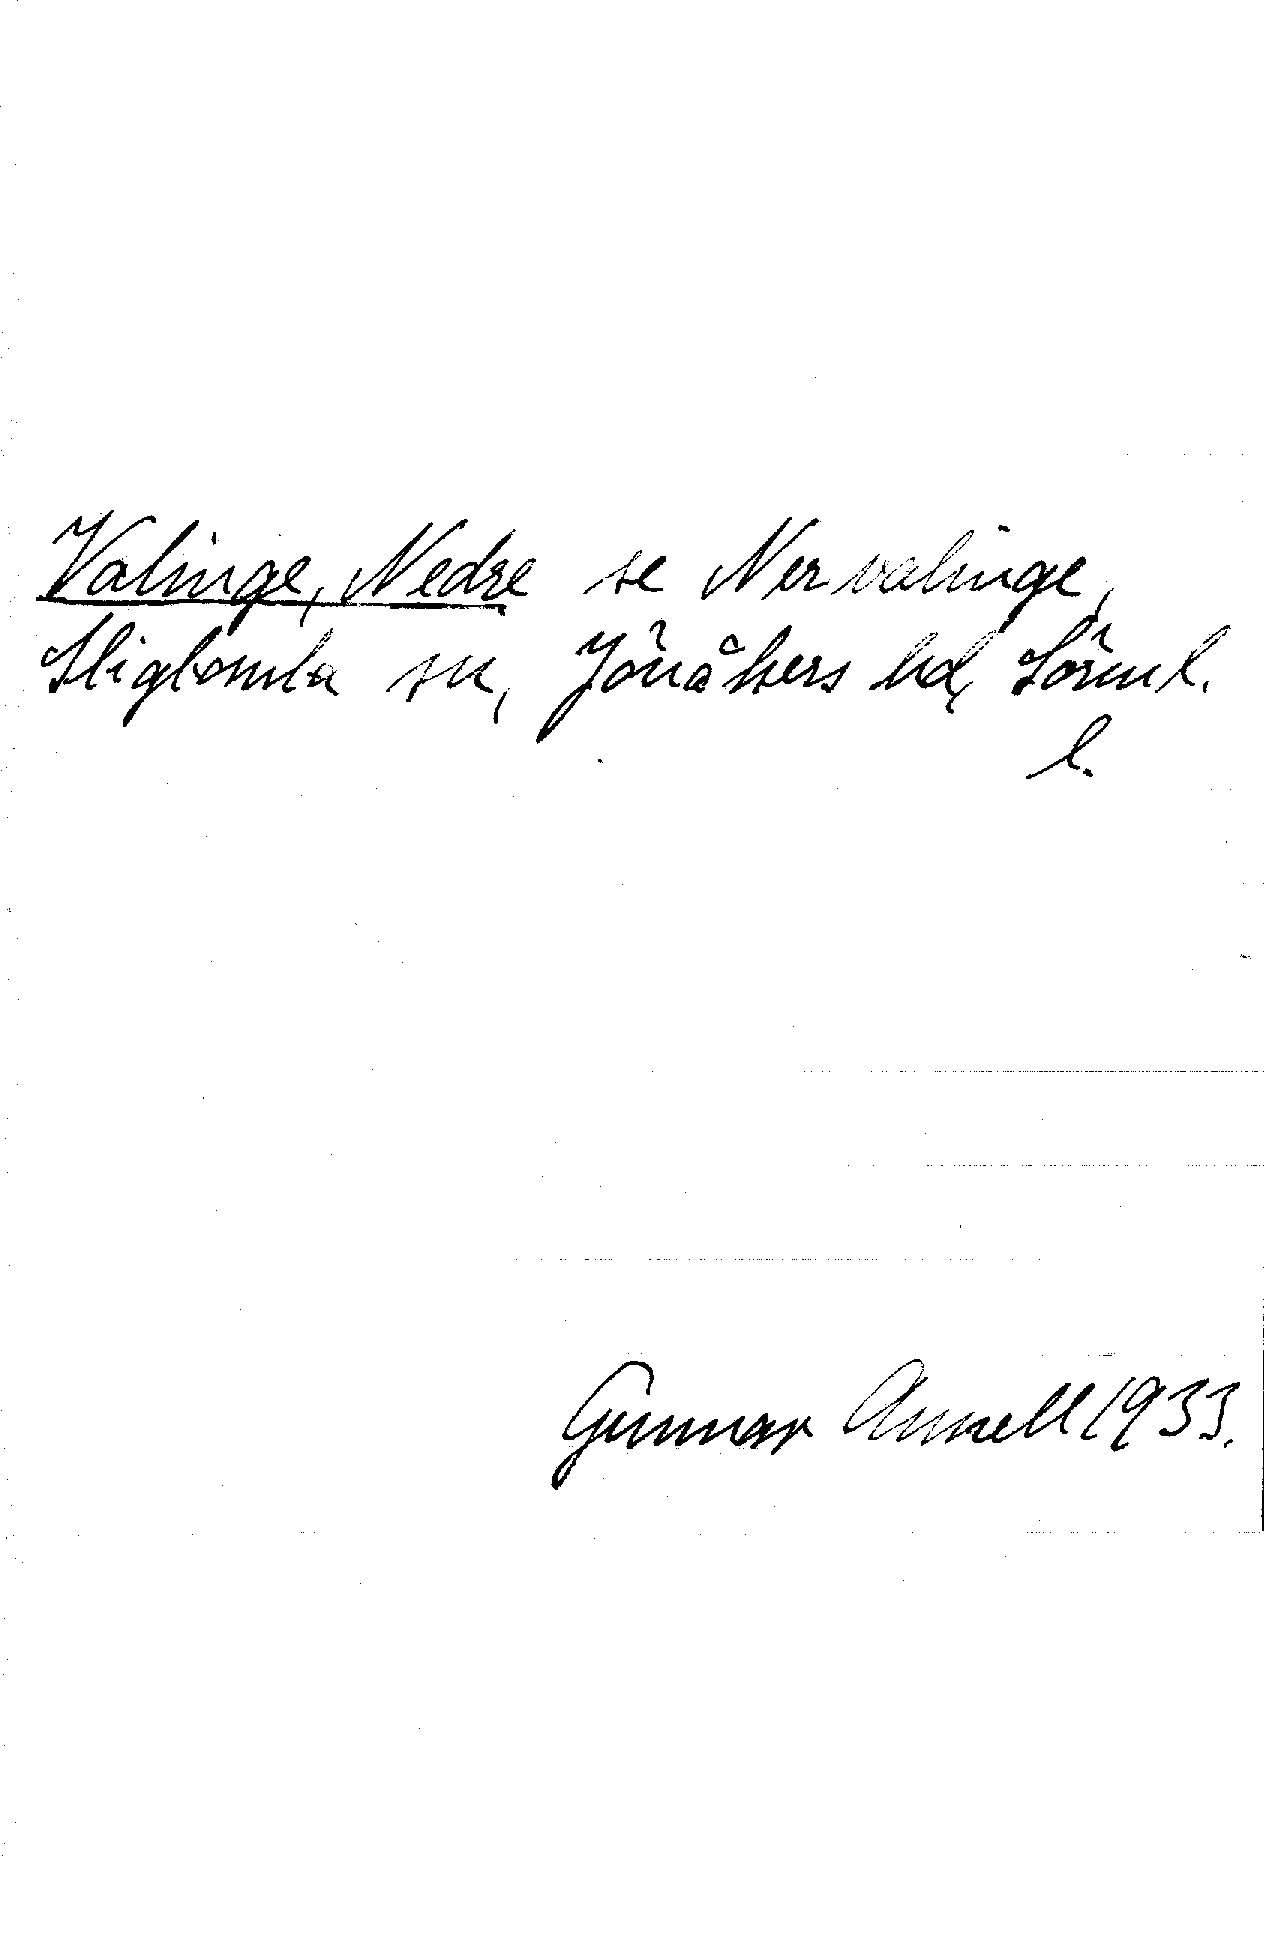 Valinge, Nedre se Nervalinge,
Stigtomta sn, Jönåkers hd, Sörml.
l.
Gunnar Annell 1933.